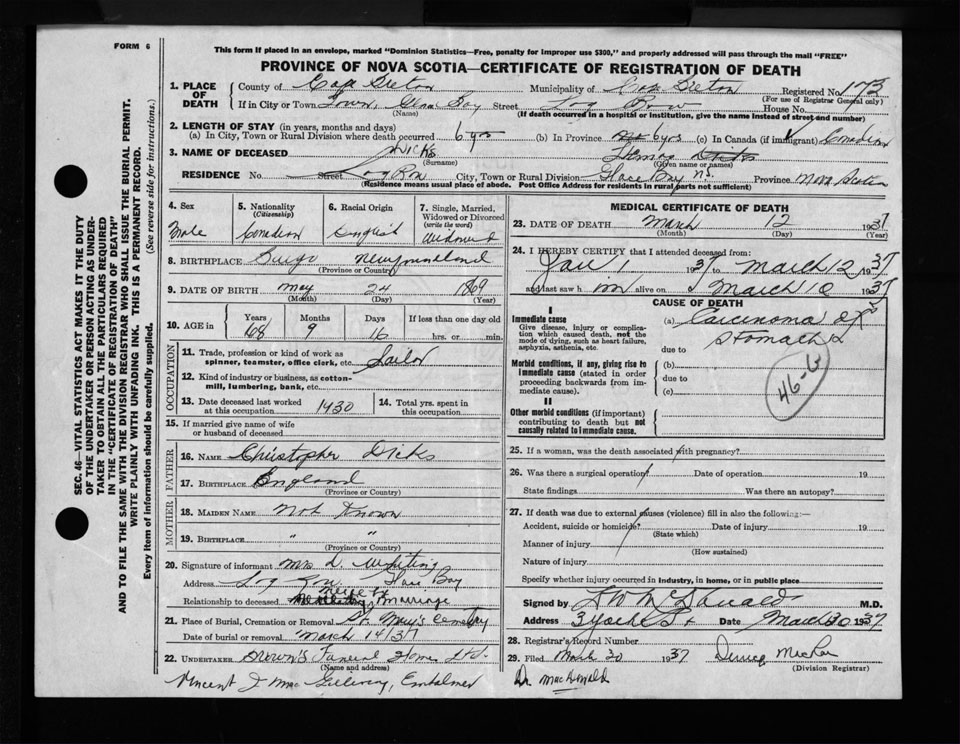 FORM 6
This form if placed in an envelope, marked "Dominion Statistics—Free, penalty for improper use $300," and properly addressed will pass through the mail "FREE"
PROVINCE OF NOVA SCOTIA—CERTIFICATE OF REGISTRATION OF DEATH
1. PLACE OF DEATH County of Cape Breton Municipality of Cape Breton Registered No. 173
(For use of Registrar General only)
If in City or Town Town, Glace Bay Street Log Row House No.
(Name) (If death occurred in a hospital or institution, give the name instead of street and number)
2. LENGTH OF STAY (in years, months and days)
(a) In City, Town or Rural Division where death occurred 6 yrs (b) In Province 6 yrs (c) In Canada (if immigrant) Canadian
3. NAME OF DECEASED Dicks
(Surname) (Given name or names)
RESIDENCE No. Street Log Row City, Town or Rural Division Glace Bay N.S. Province Nova Scotia
(Residence means usual place of abode. Post Office Address for residents in rural parts not sufficient)
4. Sex Male
5. Nationality (Citizenship) Canadian
6. Racial Origin English
7. Single, Married, Widowed or Divorced (write the word) Widowed
8. BIRTHPLACE Newfoundland
(Province or Country)
9. DATE OF BIRTH May 24 1869
(Month) (Day) (Year)
10. AGE in Years Months Days If less than one day old
68 9 16 hrs. or min.
OCCUPATION
11. Trade, profession or kind of work as spinner, teamster, office clerk, etc. Sailor
12. Kind of industry or business, as cotton-mill, lumbering, bank, etc.
13. Date deceased last worked at this occupation 1930
14. Total yrs. spent in this occupation
15. If married give name of wife or husband of deceased
FATHER
16. NAME Christopher Dicks
17. BIRTHPLACE England
(Province or Country)
MOTHER
18. MAIDEN NAME Not Known
19. BIRTHPLACE " "
(Province or Country)
20. Signature of informant Mrs D. Whiting
Address Log Row Glace Bay
Relationship to deceased Niece by Marriage
21. Place of Burial, Cremation or Removal St. Mary's Cemetery
Date of burial or removal March 14/37
22. UNDERTAKER Brown's Funeral Home Ltd.
(Name and address)
Vincent J. MacGillivray, Embalmer
MEDICAL CERTIFICATE OF DEATH
23. DATE OF DEATH March 12 1937
(Month) (Day) (Year)
24. I HEREBY CERTIFY that I attended deceased from:
Jan 1 1937 to March 12 1937
and last saw him alive on March 10 1937
CAUSE OF DEATH
I
Immediate cause (a) Carcinoma of Stomach
Give disease, injury or complication which caused death, not the mode of dying, such as heart failure, asphyxia, asthenia, etc.
due to
Morbid conditions, if any, giving rise to immediate cause (stated in order proceeding backwards from immediate cause).
(b)
due to
(c)
46-b
II
Other morbid conditions (if important) contributing to death but not causally related to immediate cause.
25. If a woman, was the death associated with pregnancy?
26. Was there a surgical operation? Date of operation 19
State findings Was there an autopsy?
27. If death was due to external causes (violence) fill in also the following:—
Accident, suicide or homicide? Date of injury 19
(State which)
Manner of injury
(How sustained)
Nature of injury
Specify whether injury occurred in industry, in home, or in public place
Signed by M.D.
Address Date March 30 1937
28. Registrar's Record Number
29. Filed March 30 1937
(Division Registrar)
Dr. MacDonald
SEC. 46—VITAL STATISTICS ACT MAKES IT THE DUTY
OF THE UNDERTAKER OR PERSON ACTING AS UNDER-
TAKER TO OBTAIN ALL THE PARTICULARS REQUIRED
IN THE "CERTIFICATE OF REGISTRATION OF DEATH"
AND TO FILE THE SAME WITH THE DIVISION REGISTRAR WHO SHALL ISSUE THE BURIAL PERMIT.
WRITE PLAINLY WITH UNFADING INK. THIS IS A PERMANENT RECORD.
Every item of information should be carefully supplied. (See reverse side for instructions.)